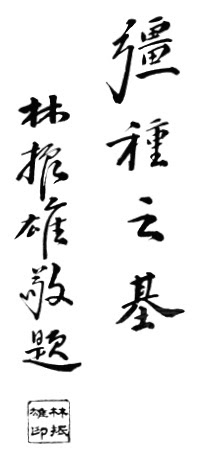 彊種之基
林振雄敬題
林振
雄印